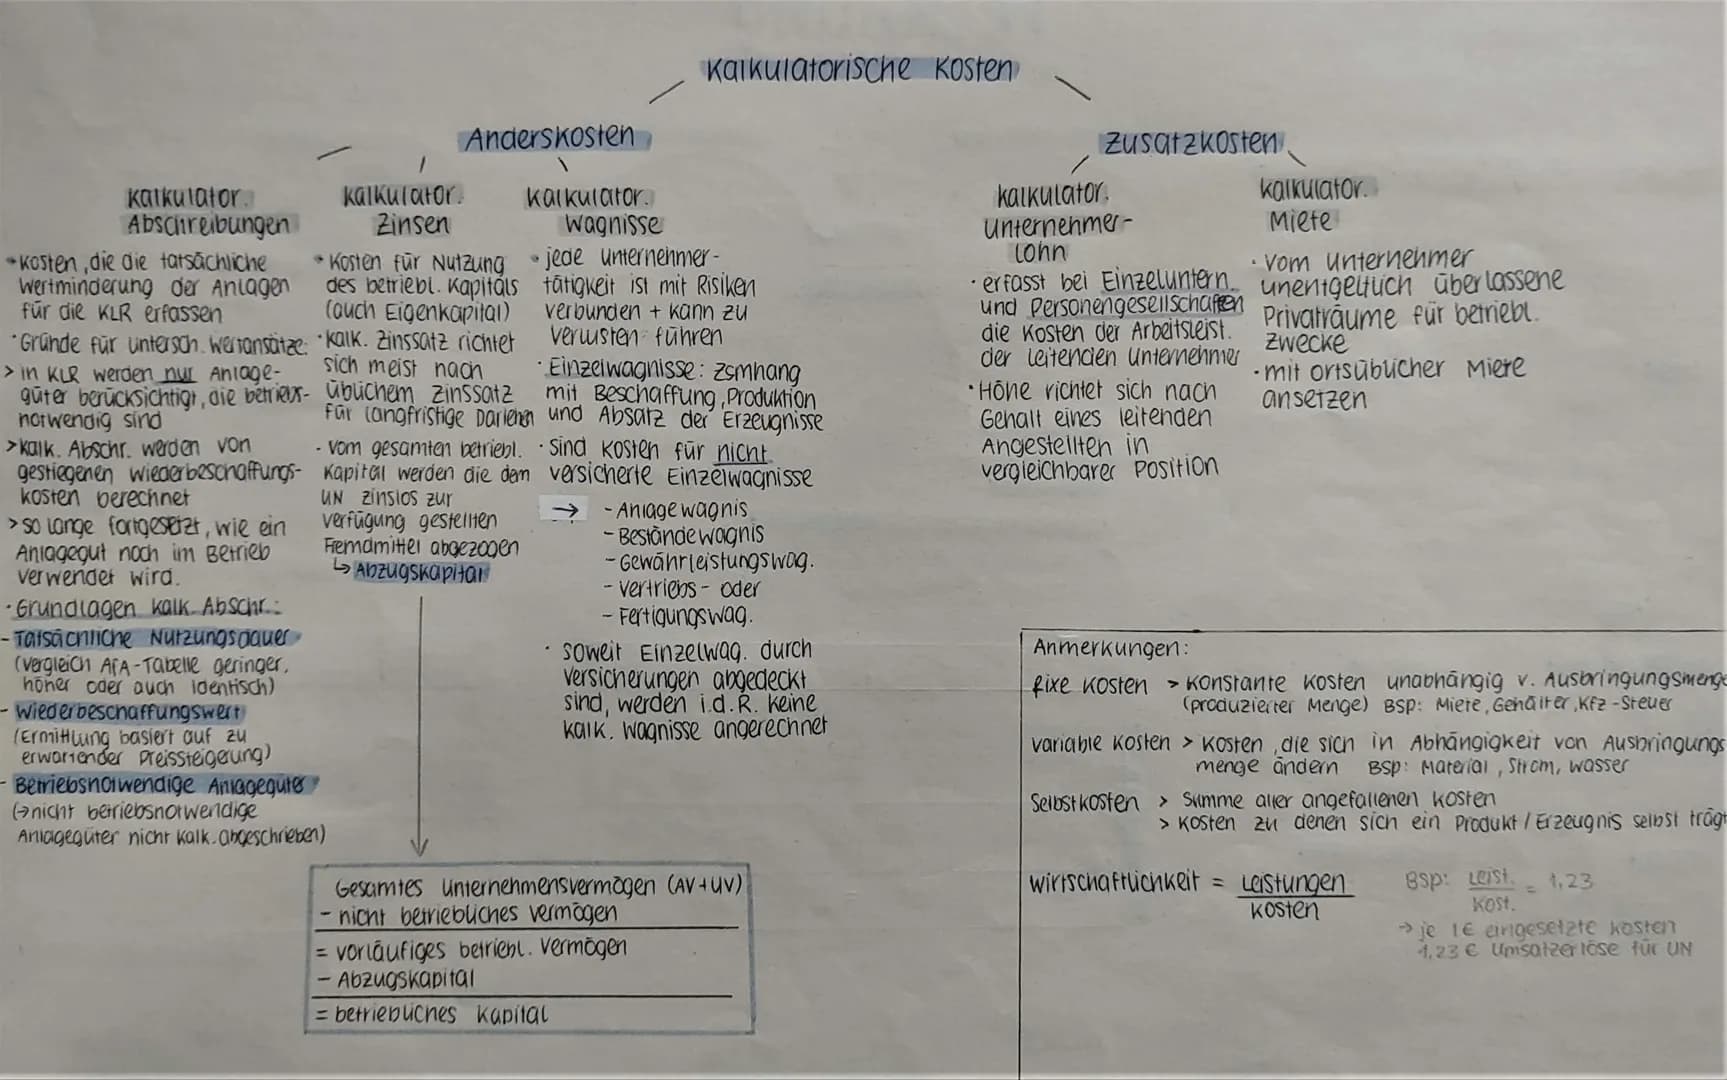 Kalkulatorische Kosten
Anderskosten
Zusatzkosten
Kalkulator.
Abschreibungen
• Kosten, die die tatsächliche
Wertminderung der Anlagen
für die KLR erfassen
• Gründe für untersch. Wertansätze:
> in KLR werden nur Anlage-
güter berücksichtigt, die betriebs-
notwendig sind
> kalk. Abschr. werden von
gestiegenen Wiederbeschaffungs-
kosten berechnet
> so lange fortgesetzt, wie ein
Anlagegut noch im Betrieb
verwendet wird.
• Grundlagen kalk. Abschr.:
- Tatsächliche Nutzungsdauer
(vergleich AfA-Tabelle geringer,
höher oder auch identisch)
- Wiederbeschaffungswert
(Ermittlung basiert auf zu
erwartender Preissteigerung)
- Betriebsnotwendige Anlagegüter
(→ nicht betriebsnotwendige
Anlagegüter nicht kalk. abgeschrieben)
Kalkulator.
Zinsen
• Kosten für Nutzung
des betriebl. Kapitals
(auch Eigenkapital)
• kalk. Zinssatz richtet
sich meist nach
üblichem Zinssatz
für langfristige Darlehen
• vom gesamten betriebl.
Kapital werden die dem
UN zinslos zur
Verfügung gestellten
Fremdmittel abgezogen
↳ Abzugskapital
Kalkulator.
Wagnisse
• jede Unternehmer-
tätigkeit ist mit Risiken
verbunden + kann zu
Verlusten führen
• Einzelwagnisse: Zsmhang
mit Beschaffung, Produktion
und Absatz der Erzeugnisse
• sind Kosten für nicht
versicherte Einzelwagnisse
→ - Anlagewagnis
- Beständewagnis
- Gewährleistungswag.
- Vertriebs- oder
- Fertigungswag.
• soweit Einzelwag. durch
Versicherungen abgedeckt
sind, werden i.d.R. keine
kalk. Wagnisse angerechnet
Gesamtes Unternehmensvermögen (AV+UV)
- nicht betriebliches Vermögen
= vorläufiges betriebl. Vermögen
- Abzugskapital
= betriebliches Kapital
kalkulator.
Unternehmer-
lohn
• erfasst bei Einzeluntern.
und Personengesellschaften
die Kosten der Arbeitsleist.
der leitenden Unternehmer
• Höhe richtet sich nach
Gehalt eines leitenden
Angestellten in
vergleichbarer Position
kalkulator.
Miete
• vom Unternehmer
unentgeltlich überlassene
Privaträume für betriebl.
Zwecke
• mit ortsüblicher Miete
ansetzen
Anmerkungen:
fixe Kosten > Konstante Kosten unabhängig v. Ausbringungsmenge
(produzierter Menge) BSP: Miete, Gehälter, Kfz-Steuer
variable Kosten > Kosten, die sich in Abhängigkeit von Ausbringungs
menge ändern BSP: Material, Strom, Wasser
Selbstkosten > Summe aller angefallenen Kosten
> Kosten zu denen sich ein Produkt / Erzeugnis selbst trägt
Wirtschaftlichkeit = Leistungen
Kosten
BSP: Leist. = 1,23
Kost.
→ je 1€ eingesetzte Kosten
1,23 € Umsatzerlöse für UN